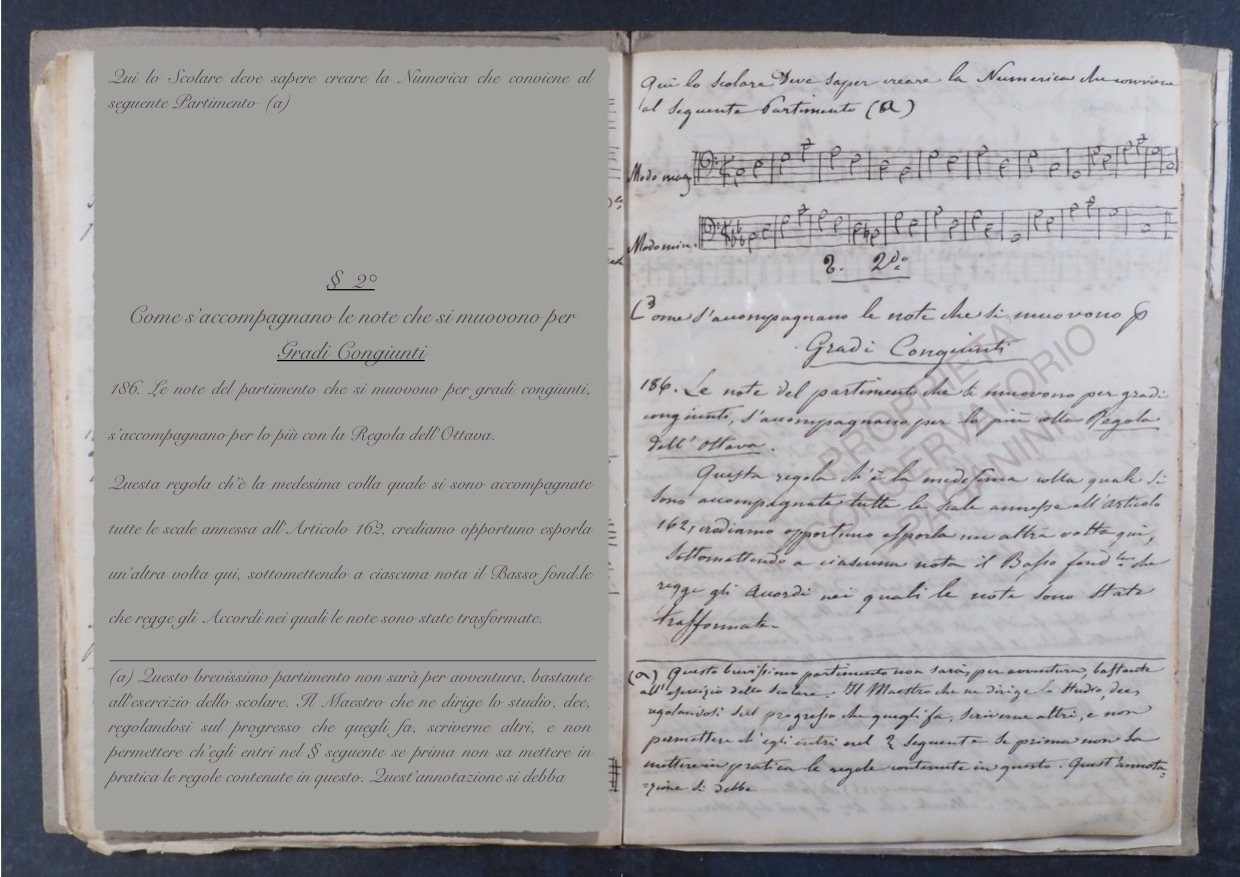 Qui lo Scolare deve sapere creare la Numerica che conviene al
seguente Partimento (a)
§ 2°
Come s'accompagnano le note che si muovono per
Gradi Congiunti
186. Le note del partimento che si muovono per gradi congiunti,
s'accompagnano per lo più con la Regola dell'Ottava.
Questa regola ch'è la medesima colla quale si sono accompagnate
tutte le scale annessa all'Articolo 162, crediamo opportuno esporla
un'altra volta qui, sottomettendo a ciascuna nota il Basso fond.le
che regge gli Accordi nei quali le note sono state trasformate.
(a) Questo brevissimo partimento non sarà per avventura, bastante
all'esercizio dello scolare. Il Maestro che ne dirige lo studio, dee,
regolandosi sul progresso che quegli fa, scriverne altri, e non
permettere ch'egli entri nel § seguente se prima non sa mettere in
pratica le regole contenute in questo. Quest'annotazione si debba
Qui lo scolare Deve saper creare la Numerica che conviene
al seguente Partimento (a)
Modo mag
Modo min.
§. 2do
Come s'accompagnano le note che si muovono p
Gradi Congiunti
186. Le note del partimento che si muovono per gradi
congiunti, s'accompagnano per lo più colla Regola
dell'Ottava.
Questa regola ch'è la medesima colla quale si
sono accompagnate tutte le scale annesse all'Articolo
162, crediamo opportuno esporla un altra volta qui,
sottomettendo a ciascuna nota il Basso fond.le che
regge gli Accordi nei quali le note sono state
trasformate.
(a) Questo brevissimo partimento non sarà, per avventura, bastante
all'esercizio dello scolare. Il Maestro che ne dirige lo studio, dee,
regolandosi sul progresso che quegli fa, scriverne altri, e non
permettere ch'egli entri nel § seguente se prima non sa
mettere in pratica le regole contenute in questo. Quest'annota=
=zione si debba
PROPRIETÀ
CONSERVATORIO
PAGANINI